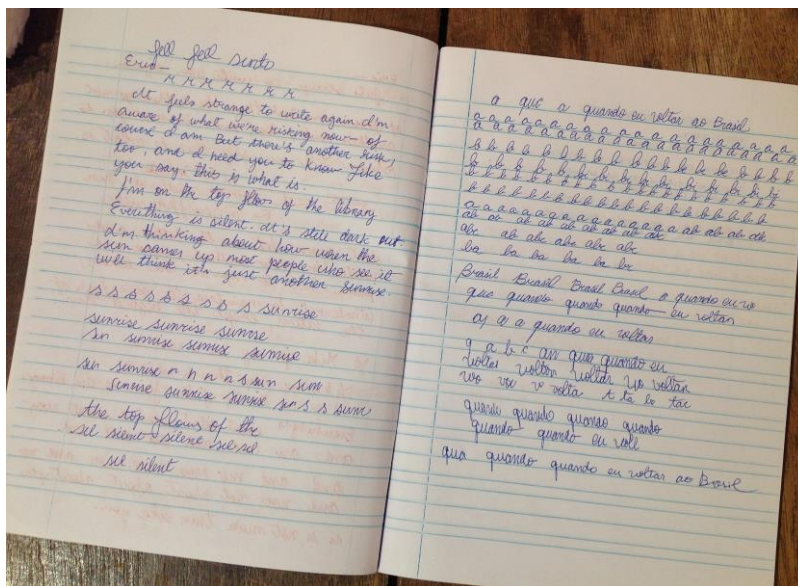 feel feel sinto
Eric—
r r r r r r r
It feels strange to write again I'm
aware of what we're risking now— of
course I am. But there's another risk,
too, and I need you to know. Like
you say, this is what is.
I'm on the top floor of the library
Everything is silent. It's still dark out
I'm thinking about how when the
sun comes up most people who see it
will think it's just another sunrise.
s s s s s s s s s sunrise
sunrise sunrise sunrise
sun sunrise sunrise sunrise
sun sunrise n n n n s sun sun
sunrise sunrise sunrise sun s s sunr
the top floors of the
sil silent silent sil sil
sil silent
a que a quando eu voltar ao Brasil
a a a a a a a a a a a a a a a a a a
a a a a a a a a a a a a a a a a a a
b b b b b b b b b b b b b b b b
b b b b b b b b b b b b b b b
b b b b b b b b b b b b b b b b
b b b b b b b b b b b b b b b b
a a a a a a a a a a a a a ab ab ab ab
ab ab ab ab ab ab ab ab
abc ab abc abc abc abc
ba ba ba ba ba ba
Brasil Brasil Brasil Brasil a quando eu vo
que quando quando quando— eu voltar
a quando eu voltar
a b c que quando eu
voltar voltar voltar vo voltar
vo vo v volta t ta ta tar
quando quando quando quando
quando quando eu volt
qua quando quando eu voltar ao Brasil